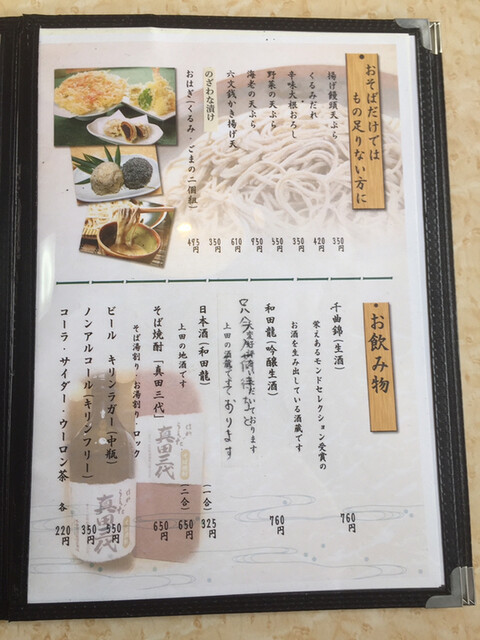 おそばだけでは
もの足りない方に
揚げ饅頭天ぷら 350円
くるみだれ 420円
辛味大根おろし 350円
野菜の天ぷら 550円
海老の天ぷら 950円
六文銭かき揚げ天 610円
のざわな漬け 350円
おはぎ(くるみ・ごまの二個組) 495円
お飲み物
千曲錦(生酒) 760円
栄えあるモンドセレクション受賞の
お酒を生み出している酒蔵です
和田龍(吟醸生酒) 760円
上田の酒蔵です
日本酒(和田龍) (一合) 325円
上田の地酒です (二合) 650円
そば焼酎「真田三代」 650円
そば湯割り・お湯割り・ロック
ビール キリンラガー(中瓶) 550円
ノンアルコール(キリンフリー) 350円
コーラ・サイダー・ウーロン茶 各 220円
真田三代
真田三代